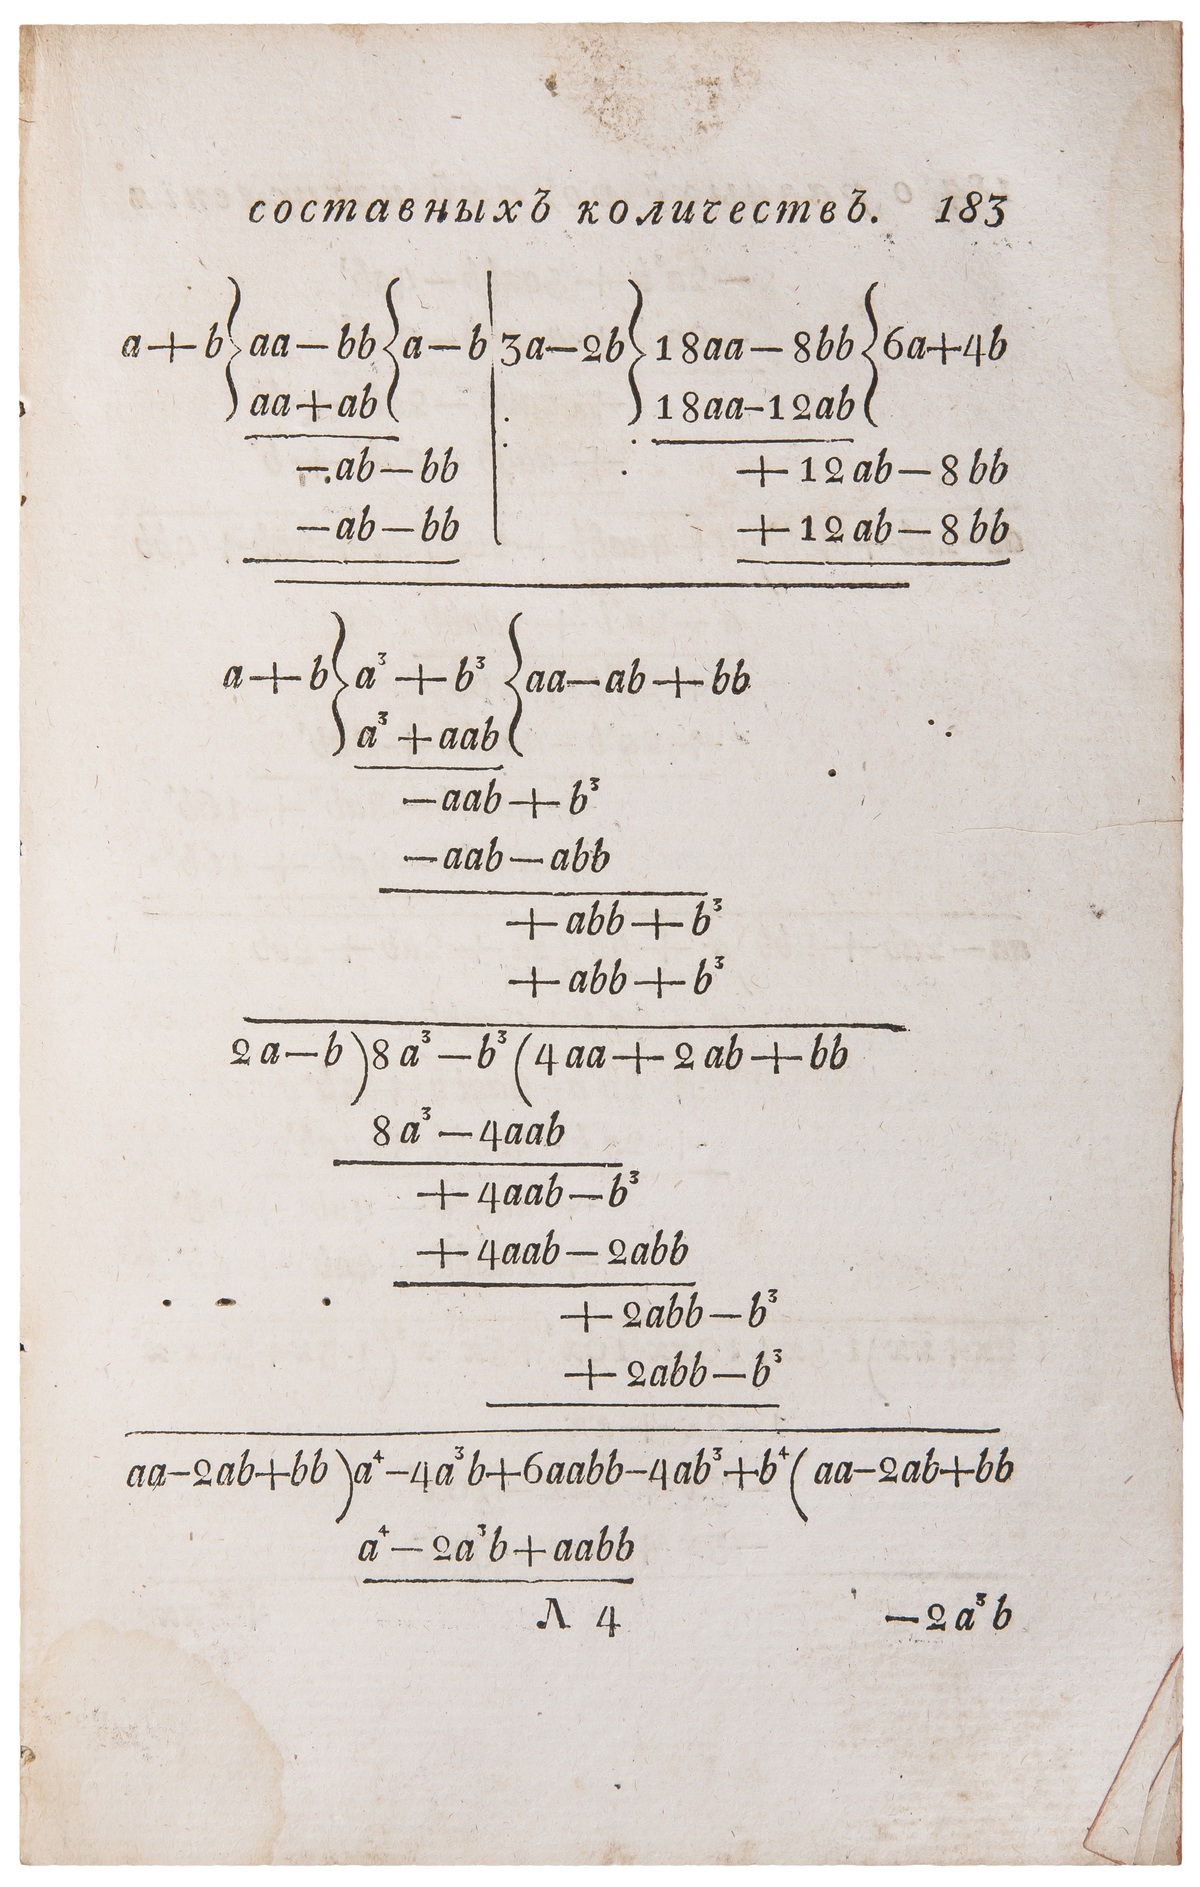 составныхъ количествъ. 183
a+b}aa−bb{a−b|3a−2b}18aa−8bb{6a+4b
aa+ab 18aa−12ab
−ab−bb +12ab−8bb
−ab−bb +12ab−8bb
a+b}a³+b³{aa−ab+bb
a³+aab
−aab+b³
−aab−abb
+abb+b³
+abb+b³
2a−b)8a³−b³(4aa+2ab+bb
8a³−4aab
+4aab−b³
+4aab−2abb
+2abb−b³
+2abb−b³
aa−2ab+bb)a⁴−4a³b+6aabb−4ab³+b⁴(aa−2ab+bb
a⁴−2a³b+aabb
Л 4 −2a³b